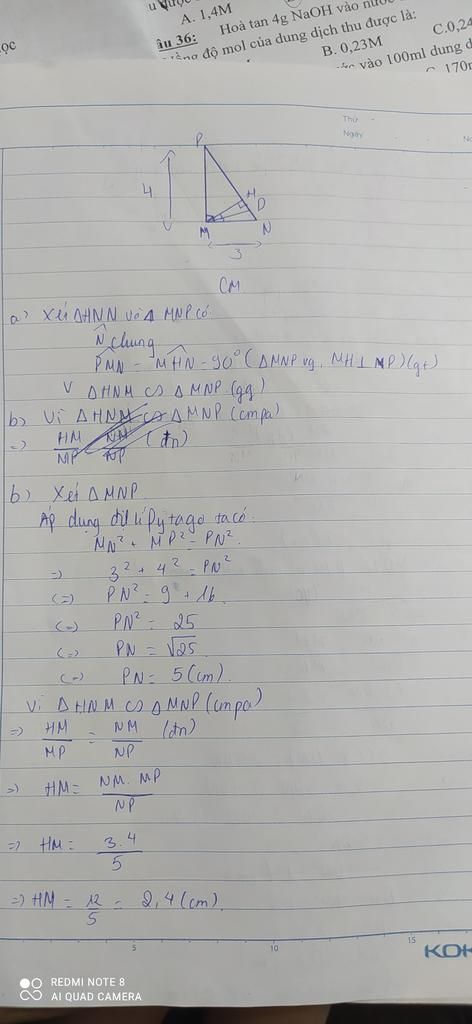 A. 1,4M
âu 36: Hoà tan 4g NaOH vào nước
ồng độ mol của dung dịch thu được là:
B. 0,23M
C.0,24
vào 100ml dung d
170
ọc
Thứ
Ngày
No
P
4
H
D
M
N
3
CM
a) Xét ΔHNN và Δ MNP có
N̂ chung
PMN = MHN = 90° (ΔMNP vg, MH⊥NP)(gt)
V ΔHNM ∽ ΔMNP (gg)
b) Vì ΔHNM ∽ ΔMNP (cmpa)
=> HM/MP NM/NP (đn)
b) Xét ΔMNP
Áp dụng đ/lí Pytago ta có:
MN² + MP² = PN².
=> 3² + 4² = PN²
(=) PN² = 9 + 16
(=) PN² = 25
(=) PN = √25
(=) PN = 5 (cm).
Vì ΔHNM ∽ ΔMNP (cmpa)
=> HM/MP = NM/NP (đn)
=> HM = NM. MP/NP
=> HM = 3.4/5
=> HM = 12/5 = 2,4 (cm).
5
10
15
KOK
REDMI NOTE 8
AI QUAD CAMERA